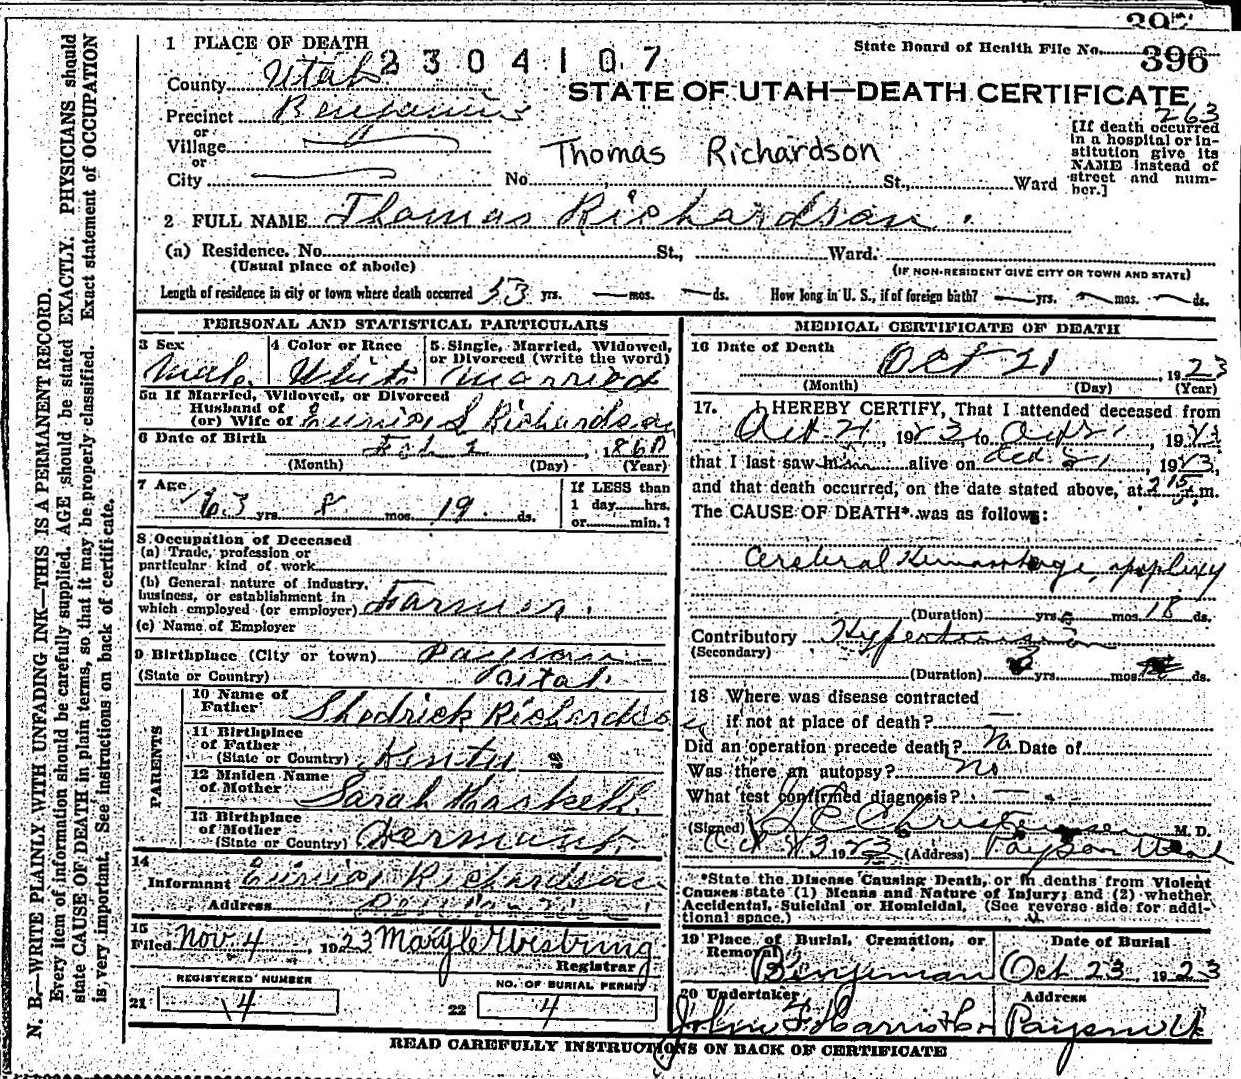 397
1 PLACE OF DEATH
2304107
State Board of Health File No. 396
County Utah
STATE OF UTAH—DEATH CERTIFICATE
Precinct Benjamin
263
or
Village
or
City
Thomas Richardson
No. St., Ward
[If death occurred
in a hospital or in-
stitution give its
NAME instead of
street and num-
ber.]
2 FULL NAME Thomas Richardson.
(a) Residence. No. St., Ward.
(Usual place of abode)
(IF NON-RESIDENT GIVE CITY OR TOWN AND STATE)
Length of residence in city or town where death occurred 53 yrs. — mos. — ds. How long in U. S., if of foreign birth? — yrs. — mos. — ds.
PERSONAL AND STATISTICAL PARTICULARS
3 Sex
Male
4 Color or Race
White
5. Single, Married, Widowed,
or Divorced (write the word)
Married
5a If Married, Widowed, or Divorced
Husband of
(or) Wife of S Richardson
6 Date of Birth Feb 2, 1860
(Month) (Day) (Year)
7 Age
63 yrs. 8 mos. 19 ds.
If LESS than
1 day hrs.
or min.?
8 Occupation of Deceased
(a) Trade, profession or
particular kind of work
(b) General nature of industry,
business, or establishment in
which employed (or employer) Farmer.
(c) Name of Employer
9 Birthplace (City or town) Payson
(State or Country) Utah
PARENTS
10 Name of
Father Shedrick Richardson
11 Birthplace
of Father
(State or Country)
12 Maiden Name
of Mother Sarah Haskell
13 Birthplace
of Mother
(State or Country)
14
Informant Richardson
Address
15
Filed Nov 4, 1923 Mary
Registrar
REGISTERED NUMBER
21 14
NO. OF BURIAL PERMIT
22 4
MEDICAL CERTIFICATE OF DEATH
16 Date of Death
Oct 21, 1923
(Month) (Day) (Year)
17. I HEREBY CERTIFY, That I attended deceased from
Oct 21, 1923, to Oct 21, 1923
that I last saw him alive on Oct 21, 1923,
and that death occurred, on the date stated above, at 2 15 P.m.
The CAUSE OF DEATH* was as follows:
Cerebral Hemorrhage, apoplexy
(Duration) yrs. mos. 18 ds.
Contributory Hypertension
(Secondary)
(Duration) yrs. mos. ds.
18 Where was disease contracted
if not at place of death? —
Did an operation precede death? No Date of
Was there an autopsy? No
What test confirmed diagnosis? —
(Signed) Christensen M. D.
Oct 23 1923 (Address) Payson Utah
*State the Disease Causing Death, or in deaths from Violent
Causes state (1) Means and Nature of Injury; and (2) whether
Accidental, Suicidal or Homicidal. (See reverse side for addi-
tional space.)
19 Place of Burial, Cremation, or
Removal
Benjeman
Date of Burial
Oct 23, 1923
20 Undertaker
John
Address
Payson Ut
READ CAREFULLY INSTRUCTIONS ON BACK OF CERTIFICATE
N. B.—WRITE PLAINLY WITH UNFADING INK—THIS IS A PERMANENT RECORD.
Every item of information should be carefully supplied. AGE should be stated EXACTLY. PHYSICIANS should
state CAUSE OF DEATH in plain terms, so that it may be properly classified. Exact statement of OCCUPATION
is very important. See instructions on back of certificate.